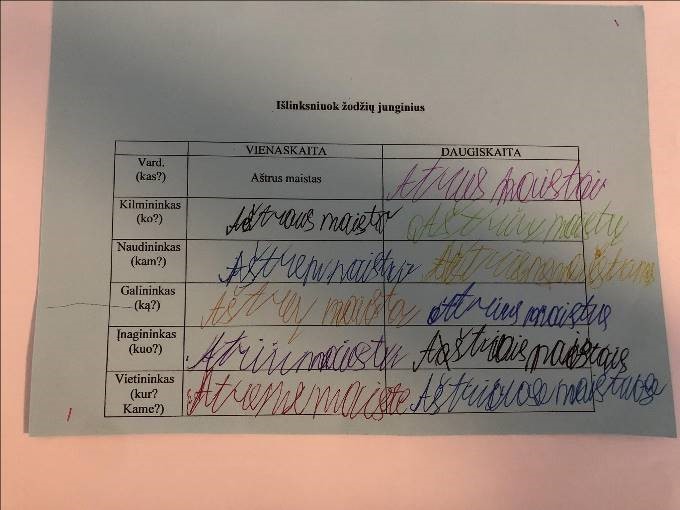 Išlinksniuok žodžių junginius
VIENASKAITA DAUGISKAITA
Vard.
(kas?) Aštrus maistas Aštrus maistai
Kilmininkas
(ko?) Aštraus maisto Aštrių maistų
Naudininkas
(kam?) Aštrem maistui
Galininkas
(ką?) Aštrų maista Atrius maistus
Įnagininkas
(kuo?) Atriu maistu Aštriais maistais
Vietininkas
(kur?
Kame?) Atreme maiste Aštriuose maistuose